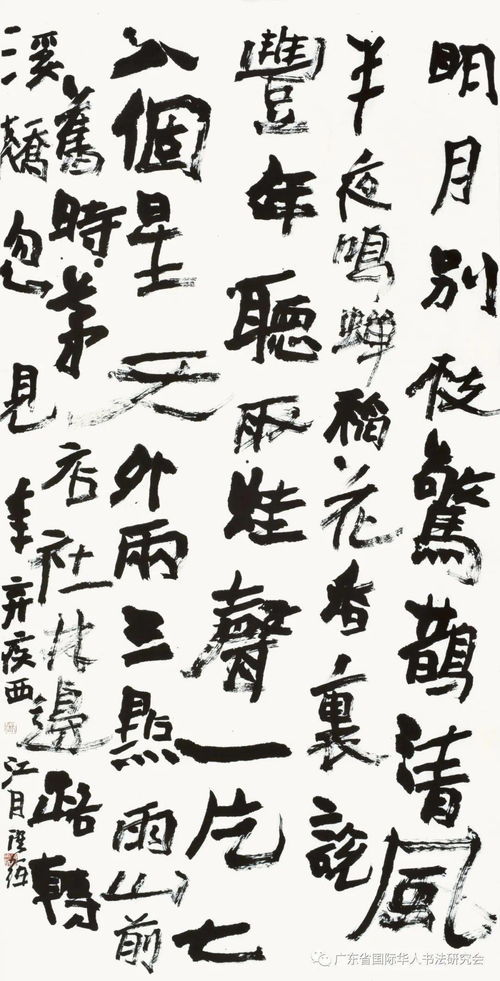 明月別枝驚鵲清風
半夜鳴蟬稻花香裏説
豐年聽取蛙聲一片七
八個星天外兩三點雨山前
舊時茅店社林邊路轉
溪橋忽見
辛弃疾西江月
广东省国际华人书法研究会